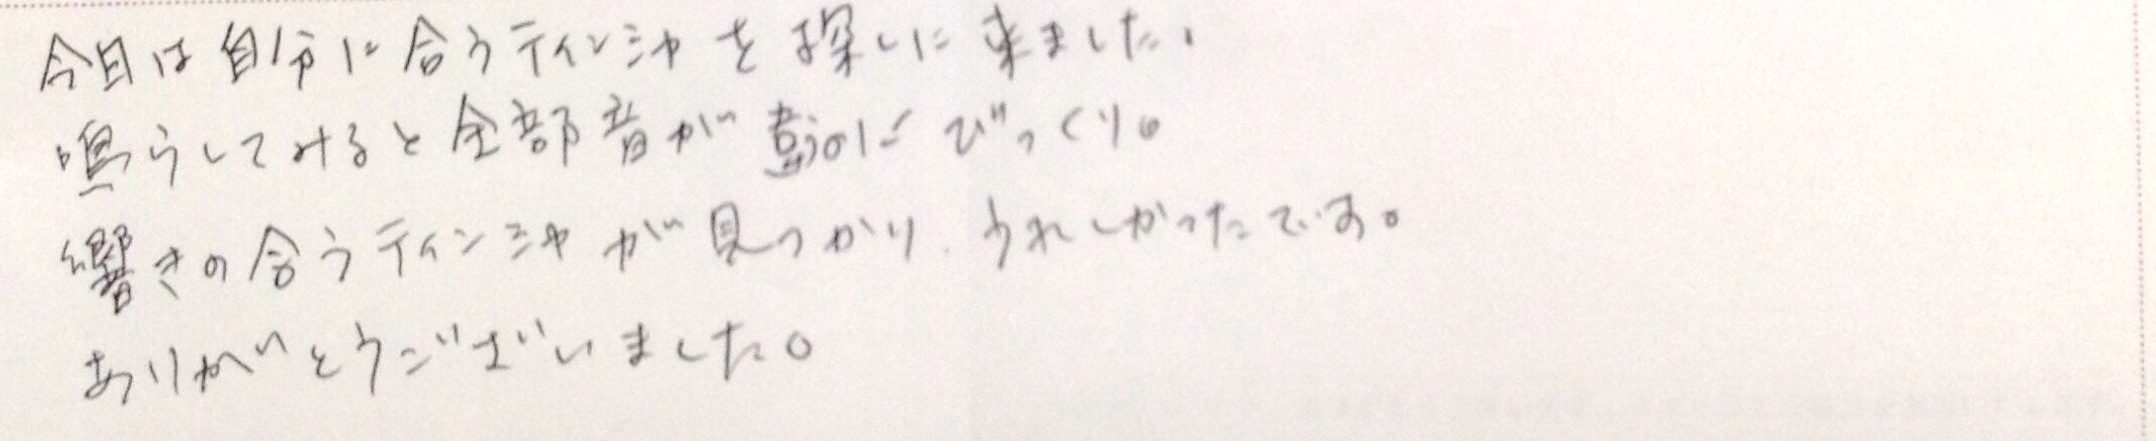 今日は自分に合うティンシャを探しに来ました。
鳴らしてみると全部音が違うのにびっくり。
響きの合うティンシャが見つかり、うれしかったです。
ありがとうございました。